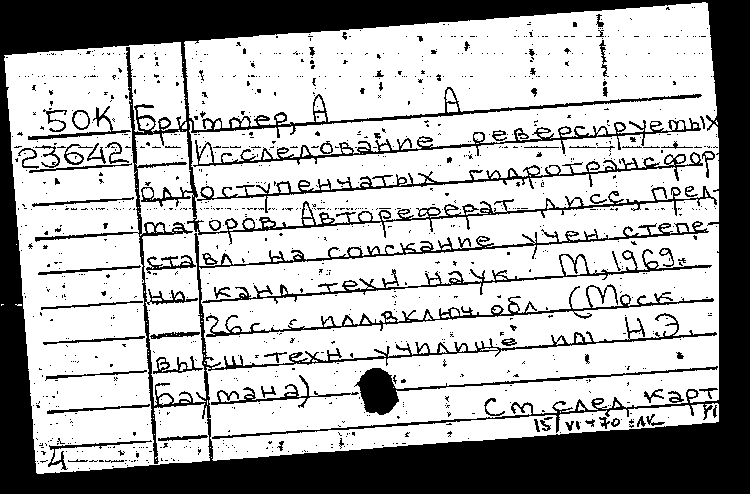 50К Бриттер, А А
23642 Исследование реверсируемых
одноступенчатых гидротрансфор-
маторов. Автореферат дисс., пред-
ставл. на соискание учен. степе-
ни канд. техн. наук. М., 1969.
26 с. с илл, включ. обл. (Моск.
высш. техн. училище им. Н.Э.
Баумана).
См. след. карт
15/VI-70
4